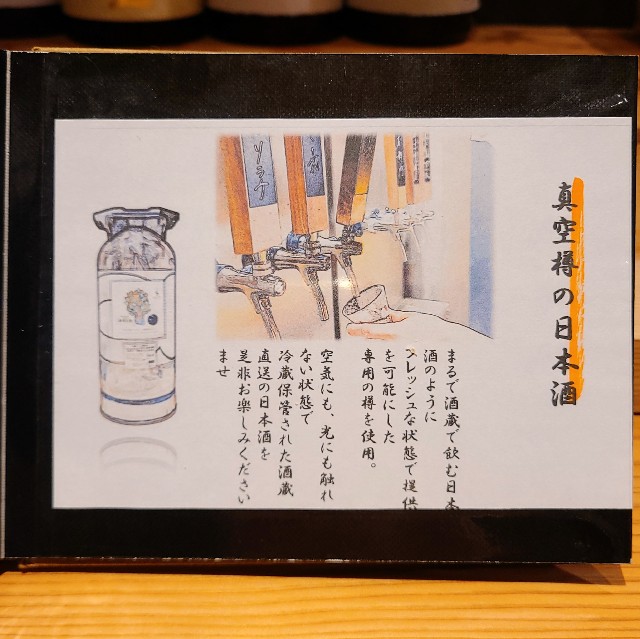 真空樽の日本酒
まるで酒蔵で飲む日本
酒のように
フレッシュな状態で提供
を可能にした
専用の樽を使用。
空気にも、光にも触れ
ない状態で
冷蔵保管された酒蔵
直送の日本酒を
是非お楽しみください
ませ